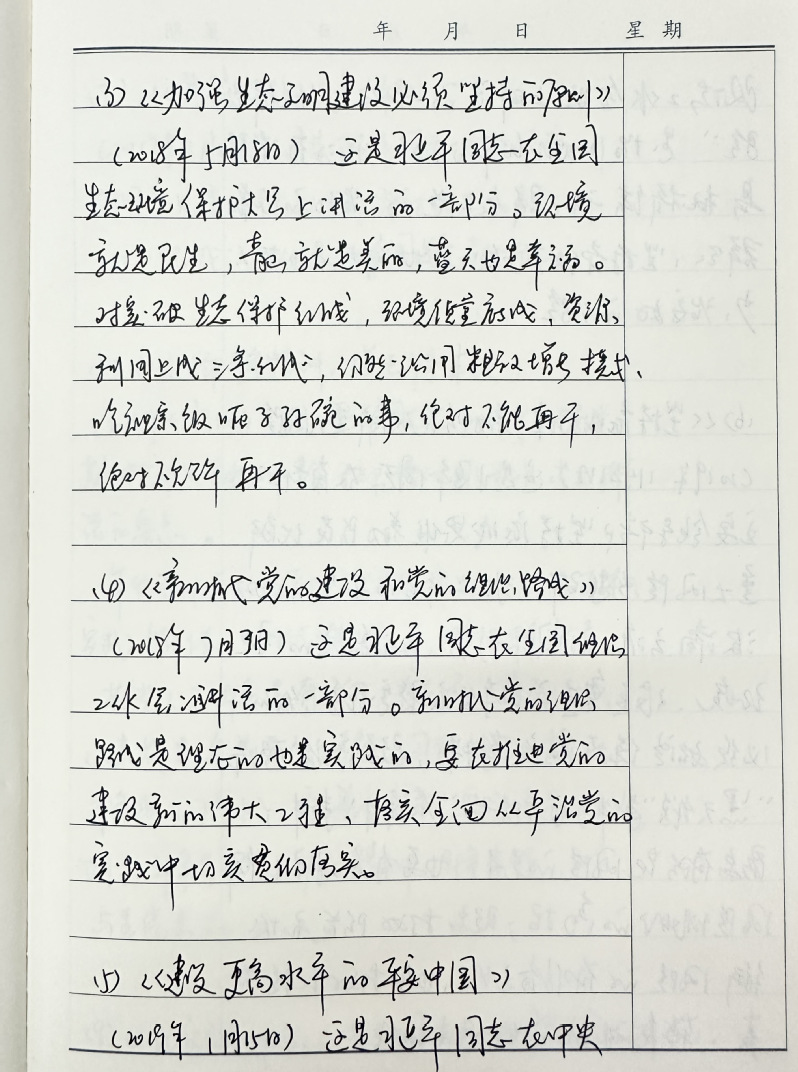 年 月 日 星期
(3)《加强生态文明建设必须坚持的原则》
(2018年5月18日) 这是习近平同志在全国
生态环境保护大会上讲话的一部分。环境
就是民生,青山就是美丽,蓝天也是幸福。
对突破生态保护红线,环境质量底线,资源
利用上线三条红线,仍然沿用粗放增长模式、
吃祖宗饭砸子孙碗的事,绝对不能再干,
绝对不允许再干。
(4)《新时代党的建设和党的组织路线》
(2018年7月3日) 这是习近平同志在全国组织
工作会议讲话的一部分。新时代党的组织
路线是理论的也是实践的,要在推进党的
建设新的伟大工程、落实全面从严治党的
实践中切实贯彻落实。
(5)《建设更高水平的平安中国》
(2019年1月15日) 这是习近平同志在中央